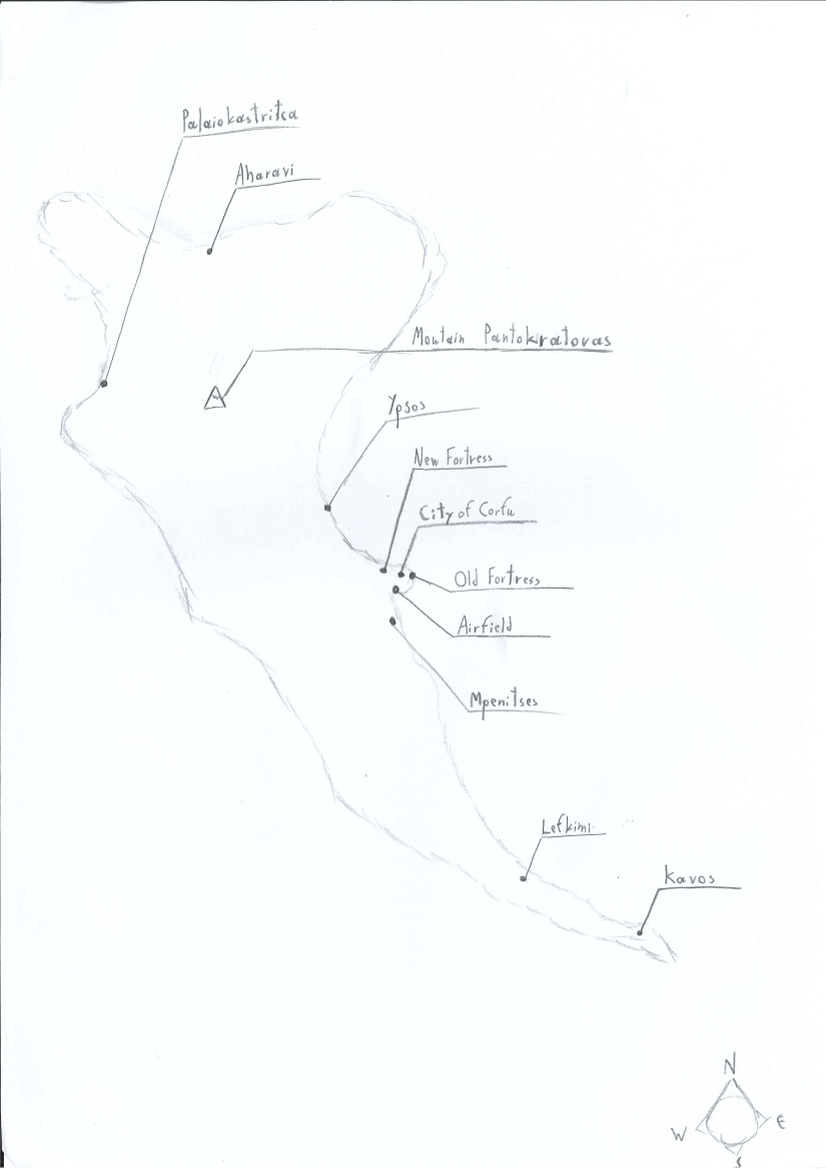 Palaiokastritca
Aharavi
Moutain Pantokratoras
Ypsos
New Fortress
City of Corfu
Old Fortress
Airfield
Mpenitses
Lefkimi
Kavos
N
W E
S